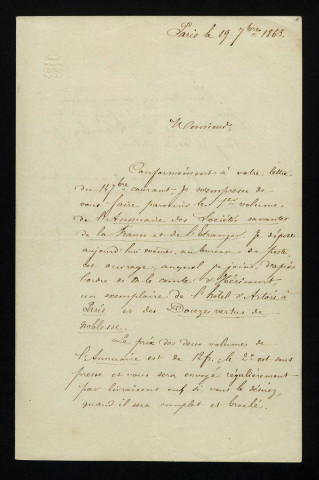 Paris le 19 7bre 1863.
Monsieur,
Conformément à votre lettre
du 15 7bre courant. Je m'empresse de
vous faire parvenir le 1er volume
de l'Annuaire des Sociétés savantes
de la France et de l'Etranger. Je dépose
aujourd'hui même, au bureau de poste,
cet ouvrage, auquel je joins, d'après
l'ordre de M. le comte d'Héricourt
un exemplaire de l'hôtel d'Artois à
Paris et des Douze vertus de
noblesse.
Le prix des deux volumes de
l'Annuaire est de 12 f; le 2e est sous
presse et vous sera envoyé régulièrement
par livraisons ou si vous le désirez,
quand il sera complet et broché.